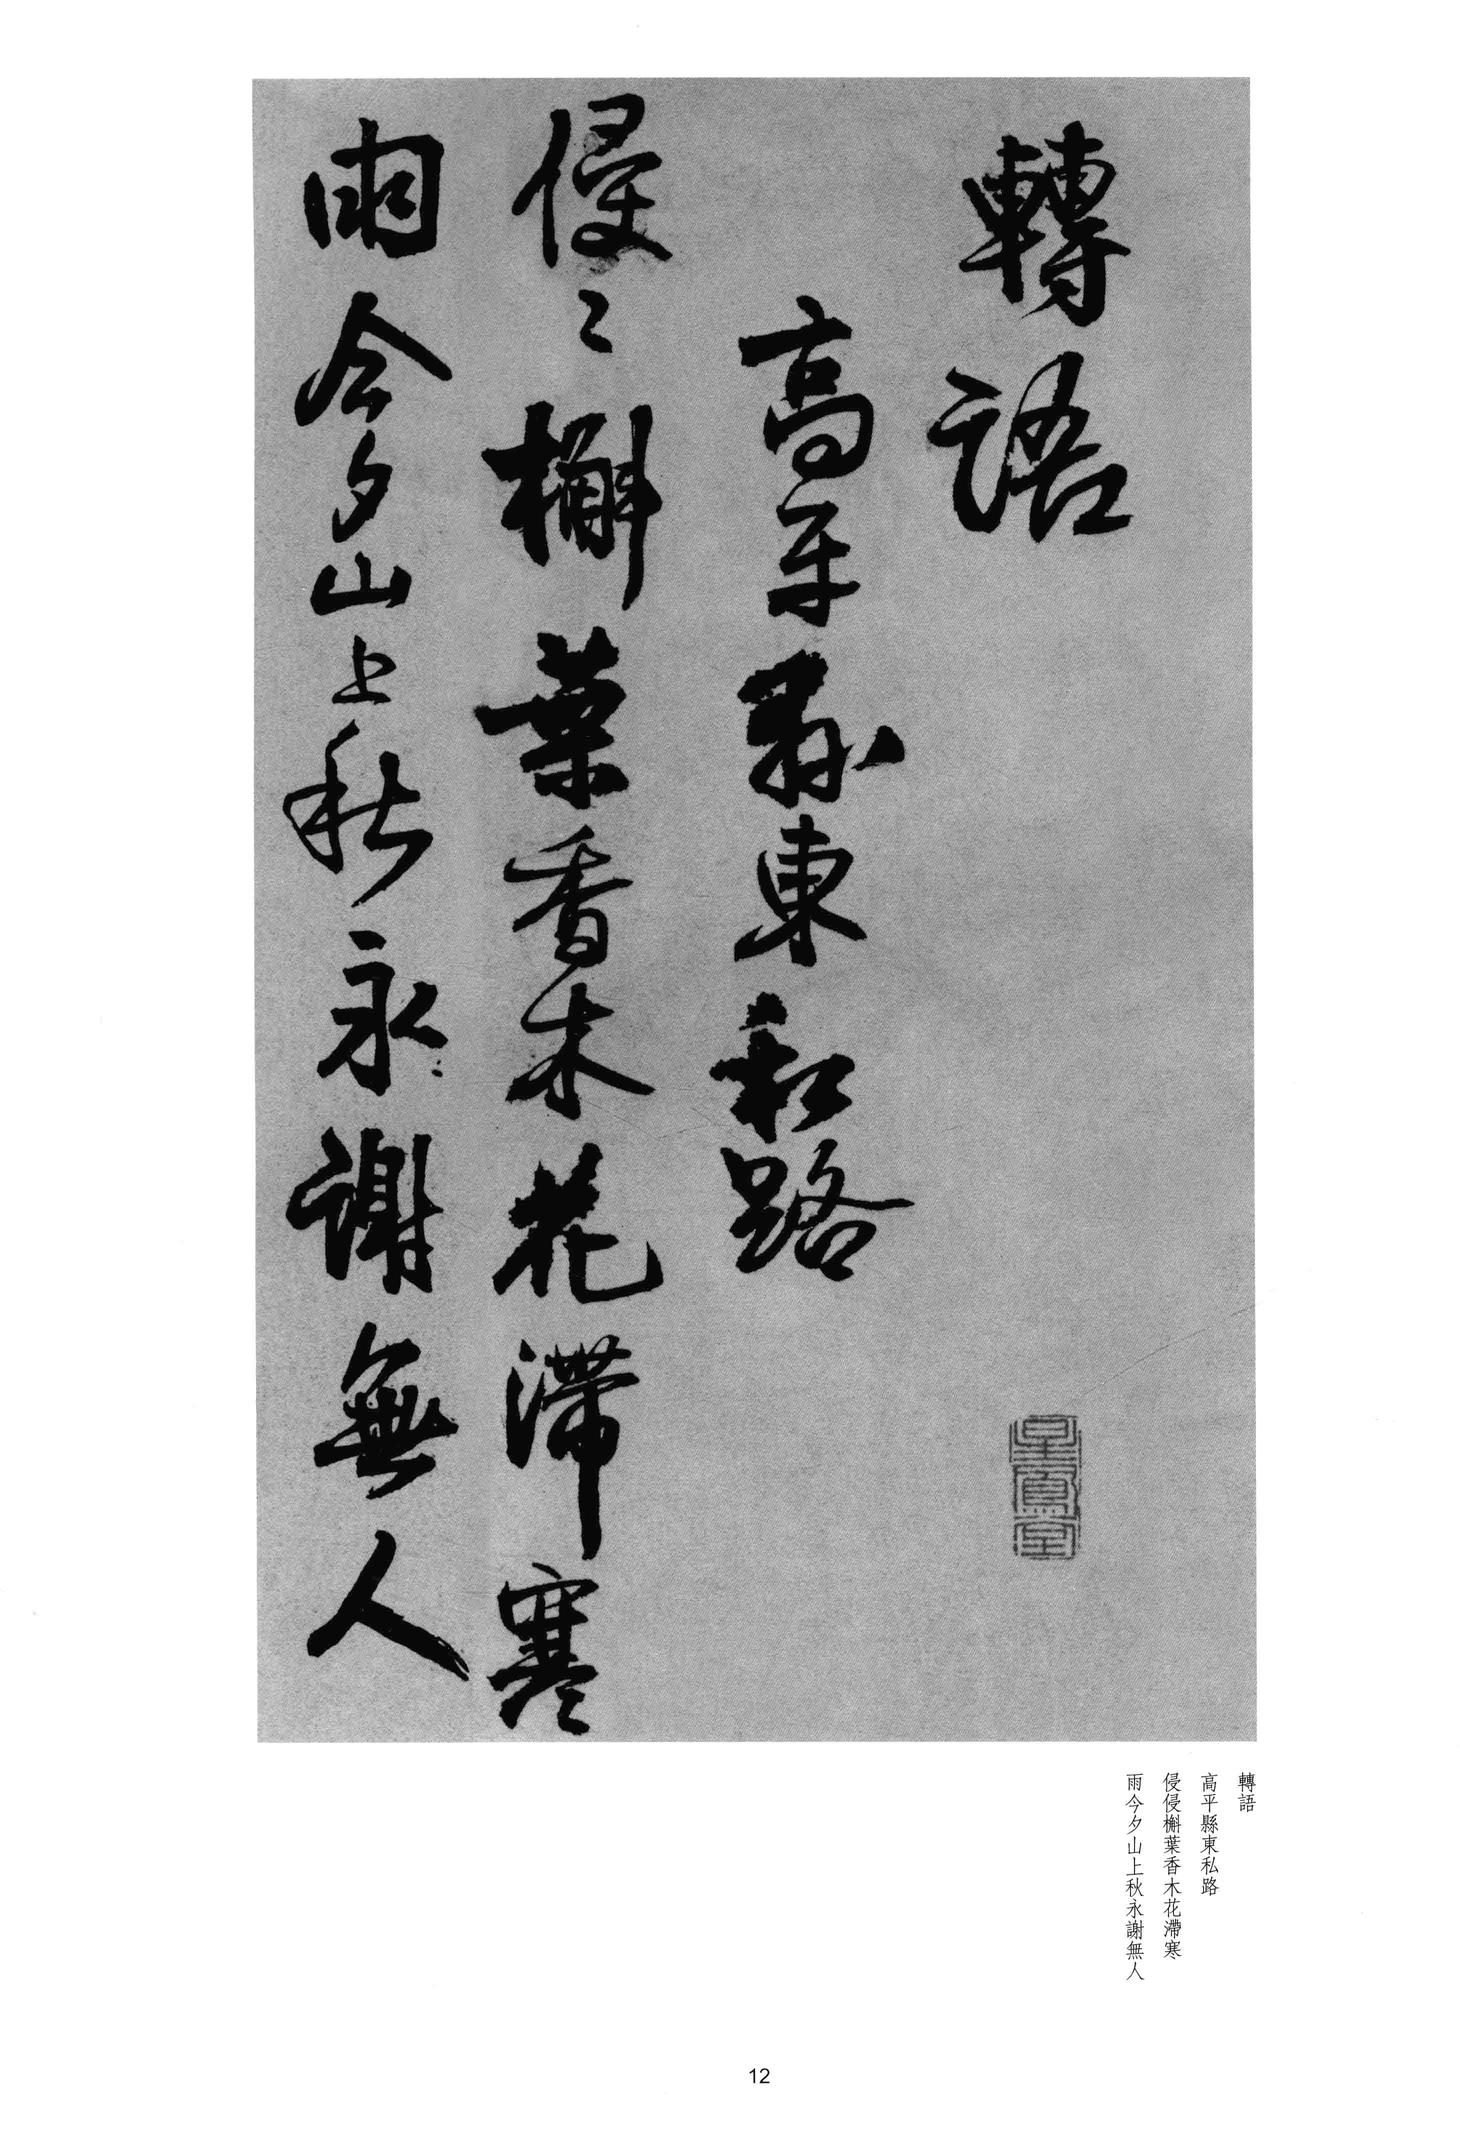 轉語
高平縣東私路
侵〻槲葉香木花滯寒
雨今夕山上秋永謝無人
轉語
高平縣東私路
侵侵槲葉香木花滯寒
雨今夕山上秋永謝無人
12